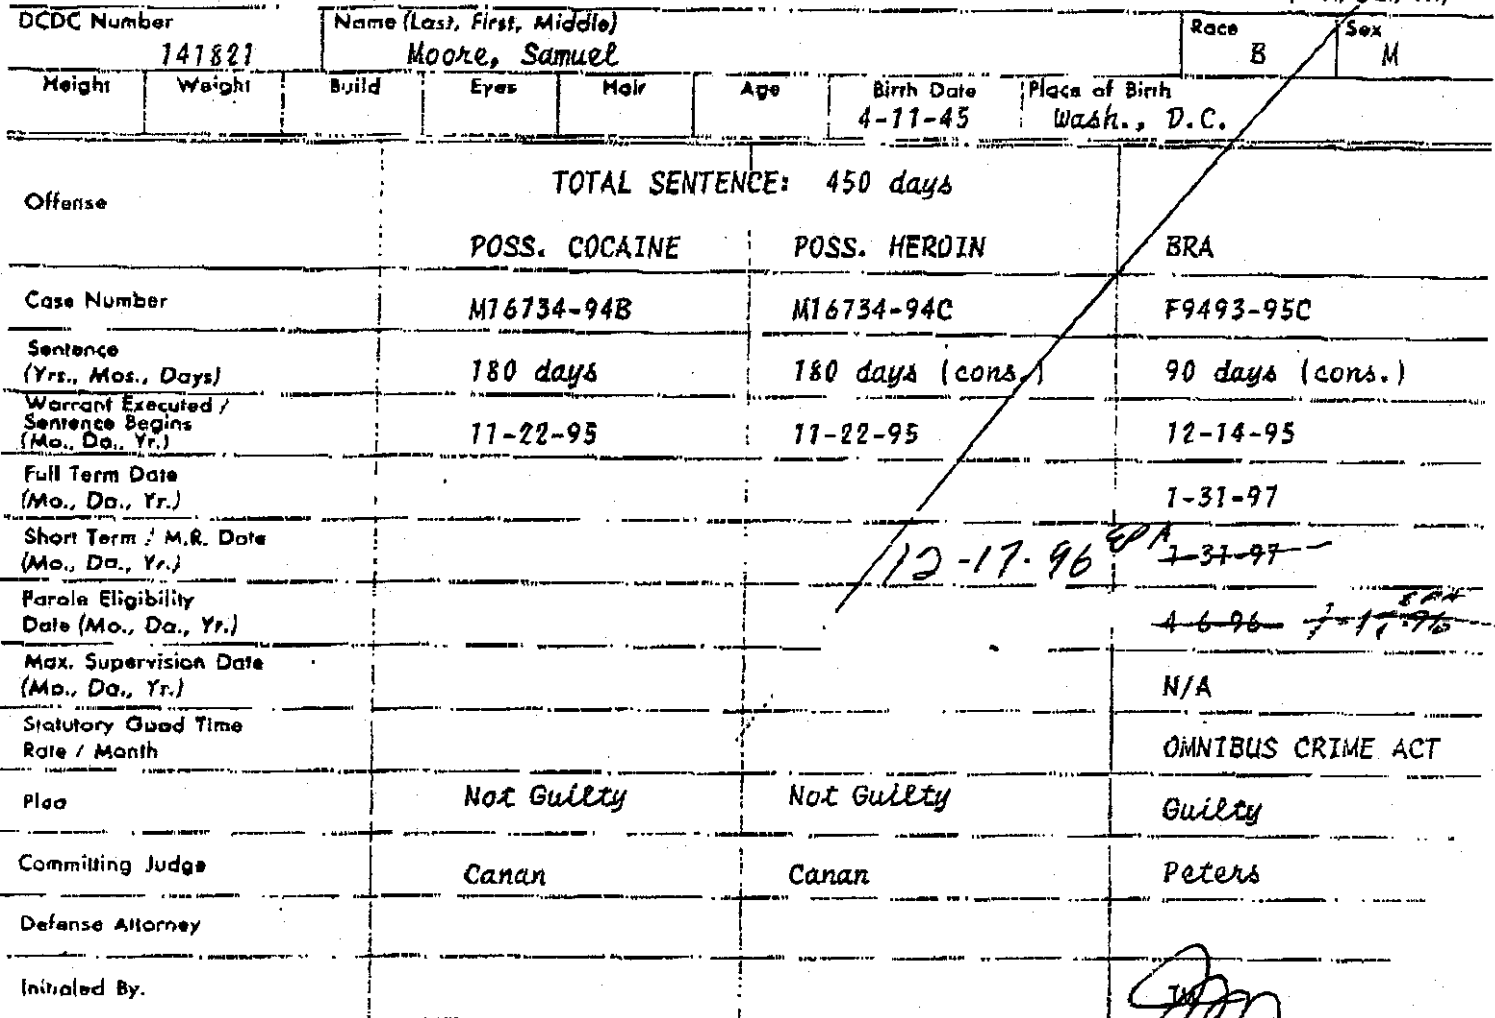 DCDC Number Name (Last, First, Middle) Race Sex
141821 Moore, Samuel B M
Height Weight Build Eyes Hair Age Birth Date Place of Birth
4-11-45 Wash., D.C.
TOTAL SENTENCE: 450 days
Offense
POSS. COCAINE POSS. HEROIN BRA
Case Number M16734-94B M16734-94C F9493-95C
Sentence
(Yrs., Mos., Days) 180 days 180 days (cons.) 90 days (cons.)
Warrant Executed /
Sentence Begins
(Mo., Da., Yr.) 11-22-95 11-22-95 12-14-95
Full Term Date
(Mo., Da., Yr.) 1-31-97
Short Term / M.R. Date
(Mo., Da., Yr.) 12-17-96 1-31-97
Parole Eligibility
Date (Mo., Da., Yr.) 4-6-96
Max. Supervision Date
(Mo., Da., Yr.) N/A
Statutory Good Time
Rate / Month OMNIBUS CRIME ACT
Plea Not Guilty Not Guilty Guilty
Committing Judge Canan Canan Peters
Defense Attorney
Initialed By.